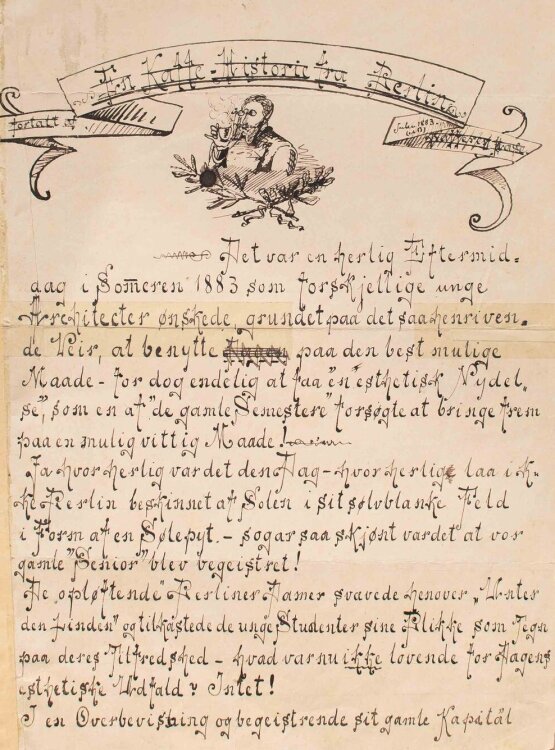 En Kaffe-Historie fra Berlin
fortalt af
Juli 1883
Det var en herlig Eftermid-
dag i Som̄eren 1883 som forskjellige unge
Architecter ønskede, grundet paa det saa henriven-
de Veir, at benytte paa den best mulige
Maade - for dog endelig at faa "en esthetisk Nydel-
se", som en af "de gamle Semestere" forsøgte at bringe frem
paa en mulig vittig Maade!
Ja hvor herlig var det den Dag - hvor herlig laa ik-
ke Berlin beskinnet af Solen i sit sølvblanke Feld
i Form af en Sølepyt. - sogar saa skjønt var det at vor
gamle "Senior" blev begeistret!
De "opløftende" Berliner Damer svavede henover "Unter
den Linden" og tilkastede de unge Studenter sine Blikke som Tegn
paa deres Tilfredshed - hvad var nu ikke lovende for Dagens
esthetiske Udfald? Intet!
I en Overbevisning og begeistrende sit gamle Kapitäl